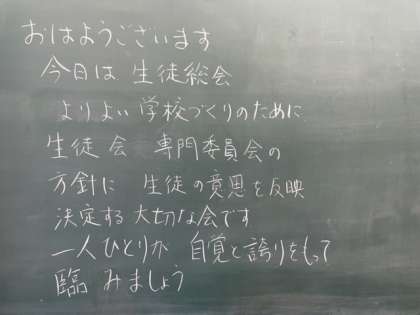 おはようございます
今日は 生徒総会
よりよい学校づくりのために
生徒会 専門委員会の
方針に 生徒の意思を反映
決定する大切な会です
一人ひとりが 自覚と誇りをもって
臨みましょう